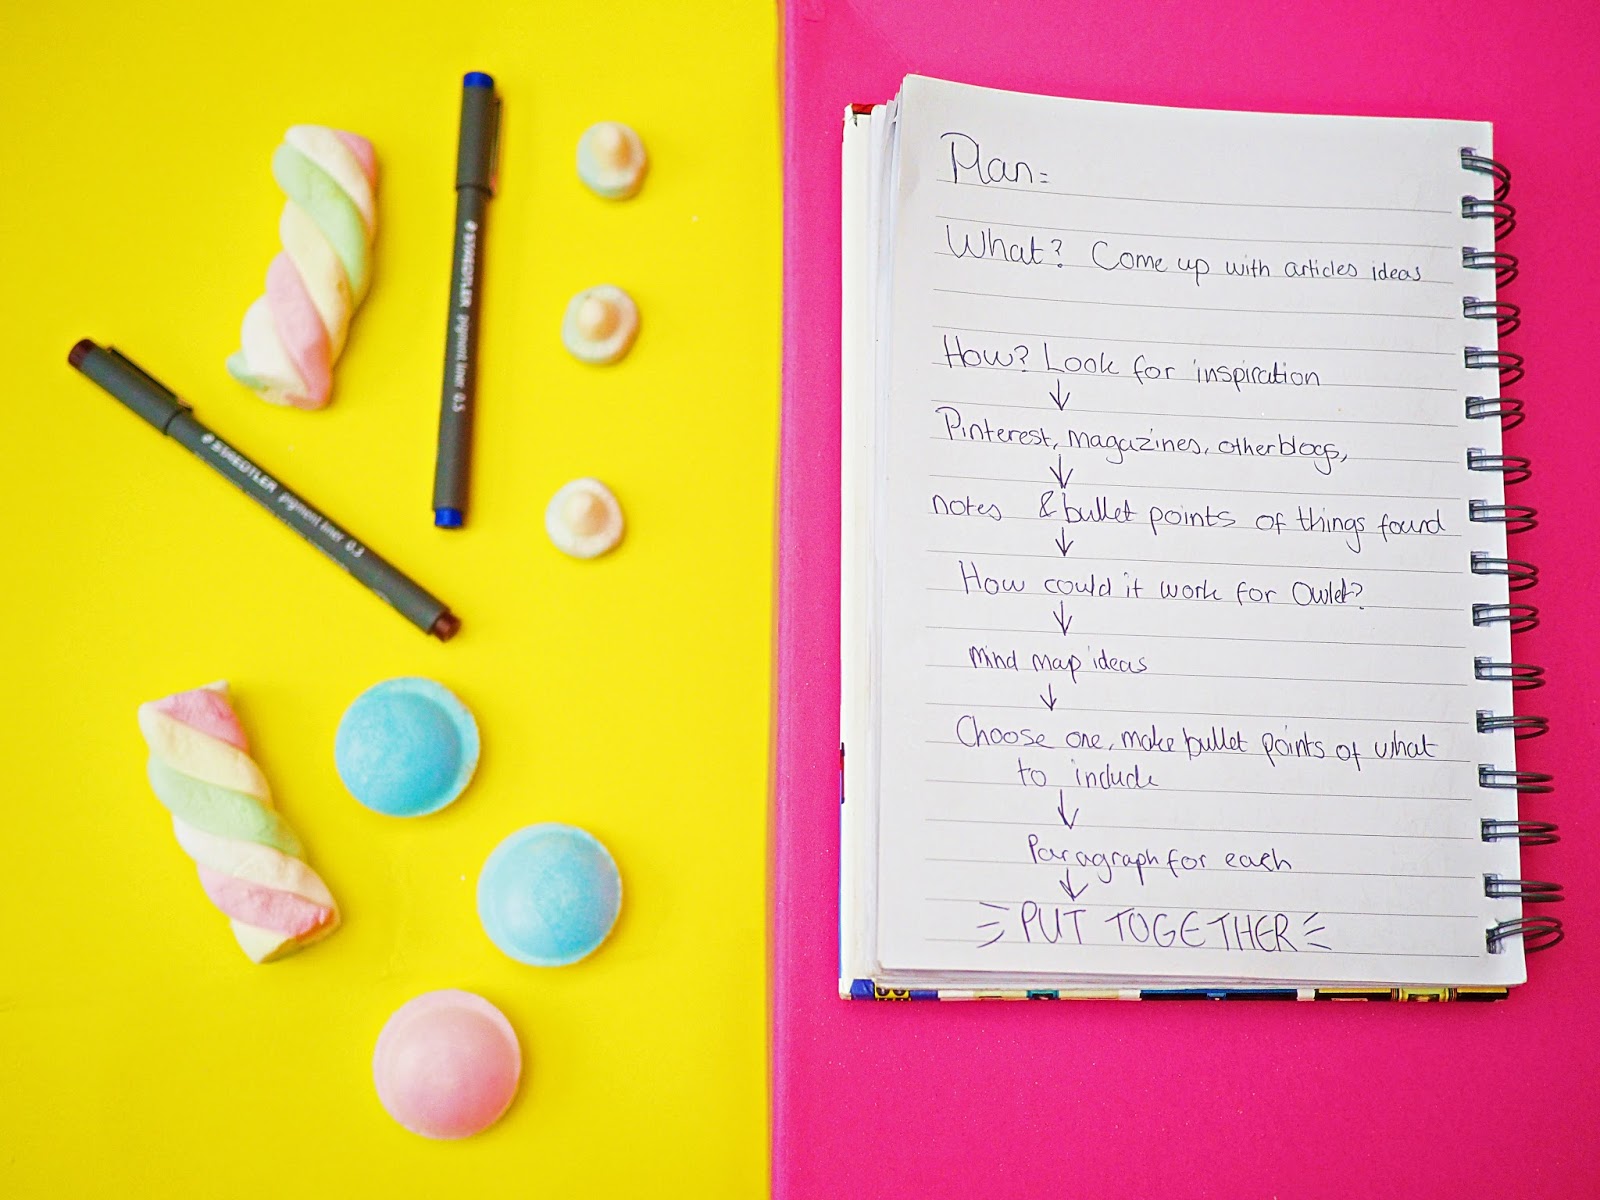 STAEDTLER pigment liner 0.5
STAEDTLER pigment liner 0.3
Plan:
What? Come up with articles ideas
How? Look for inspiration
Pinterest, magazines, other blogs,
notes & bullet points of things found
How could it work for Owlet?
Mind map ideas
Choose one, make bullet points of what
to include
Paragraph for each
PUT TOGETHER